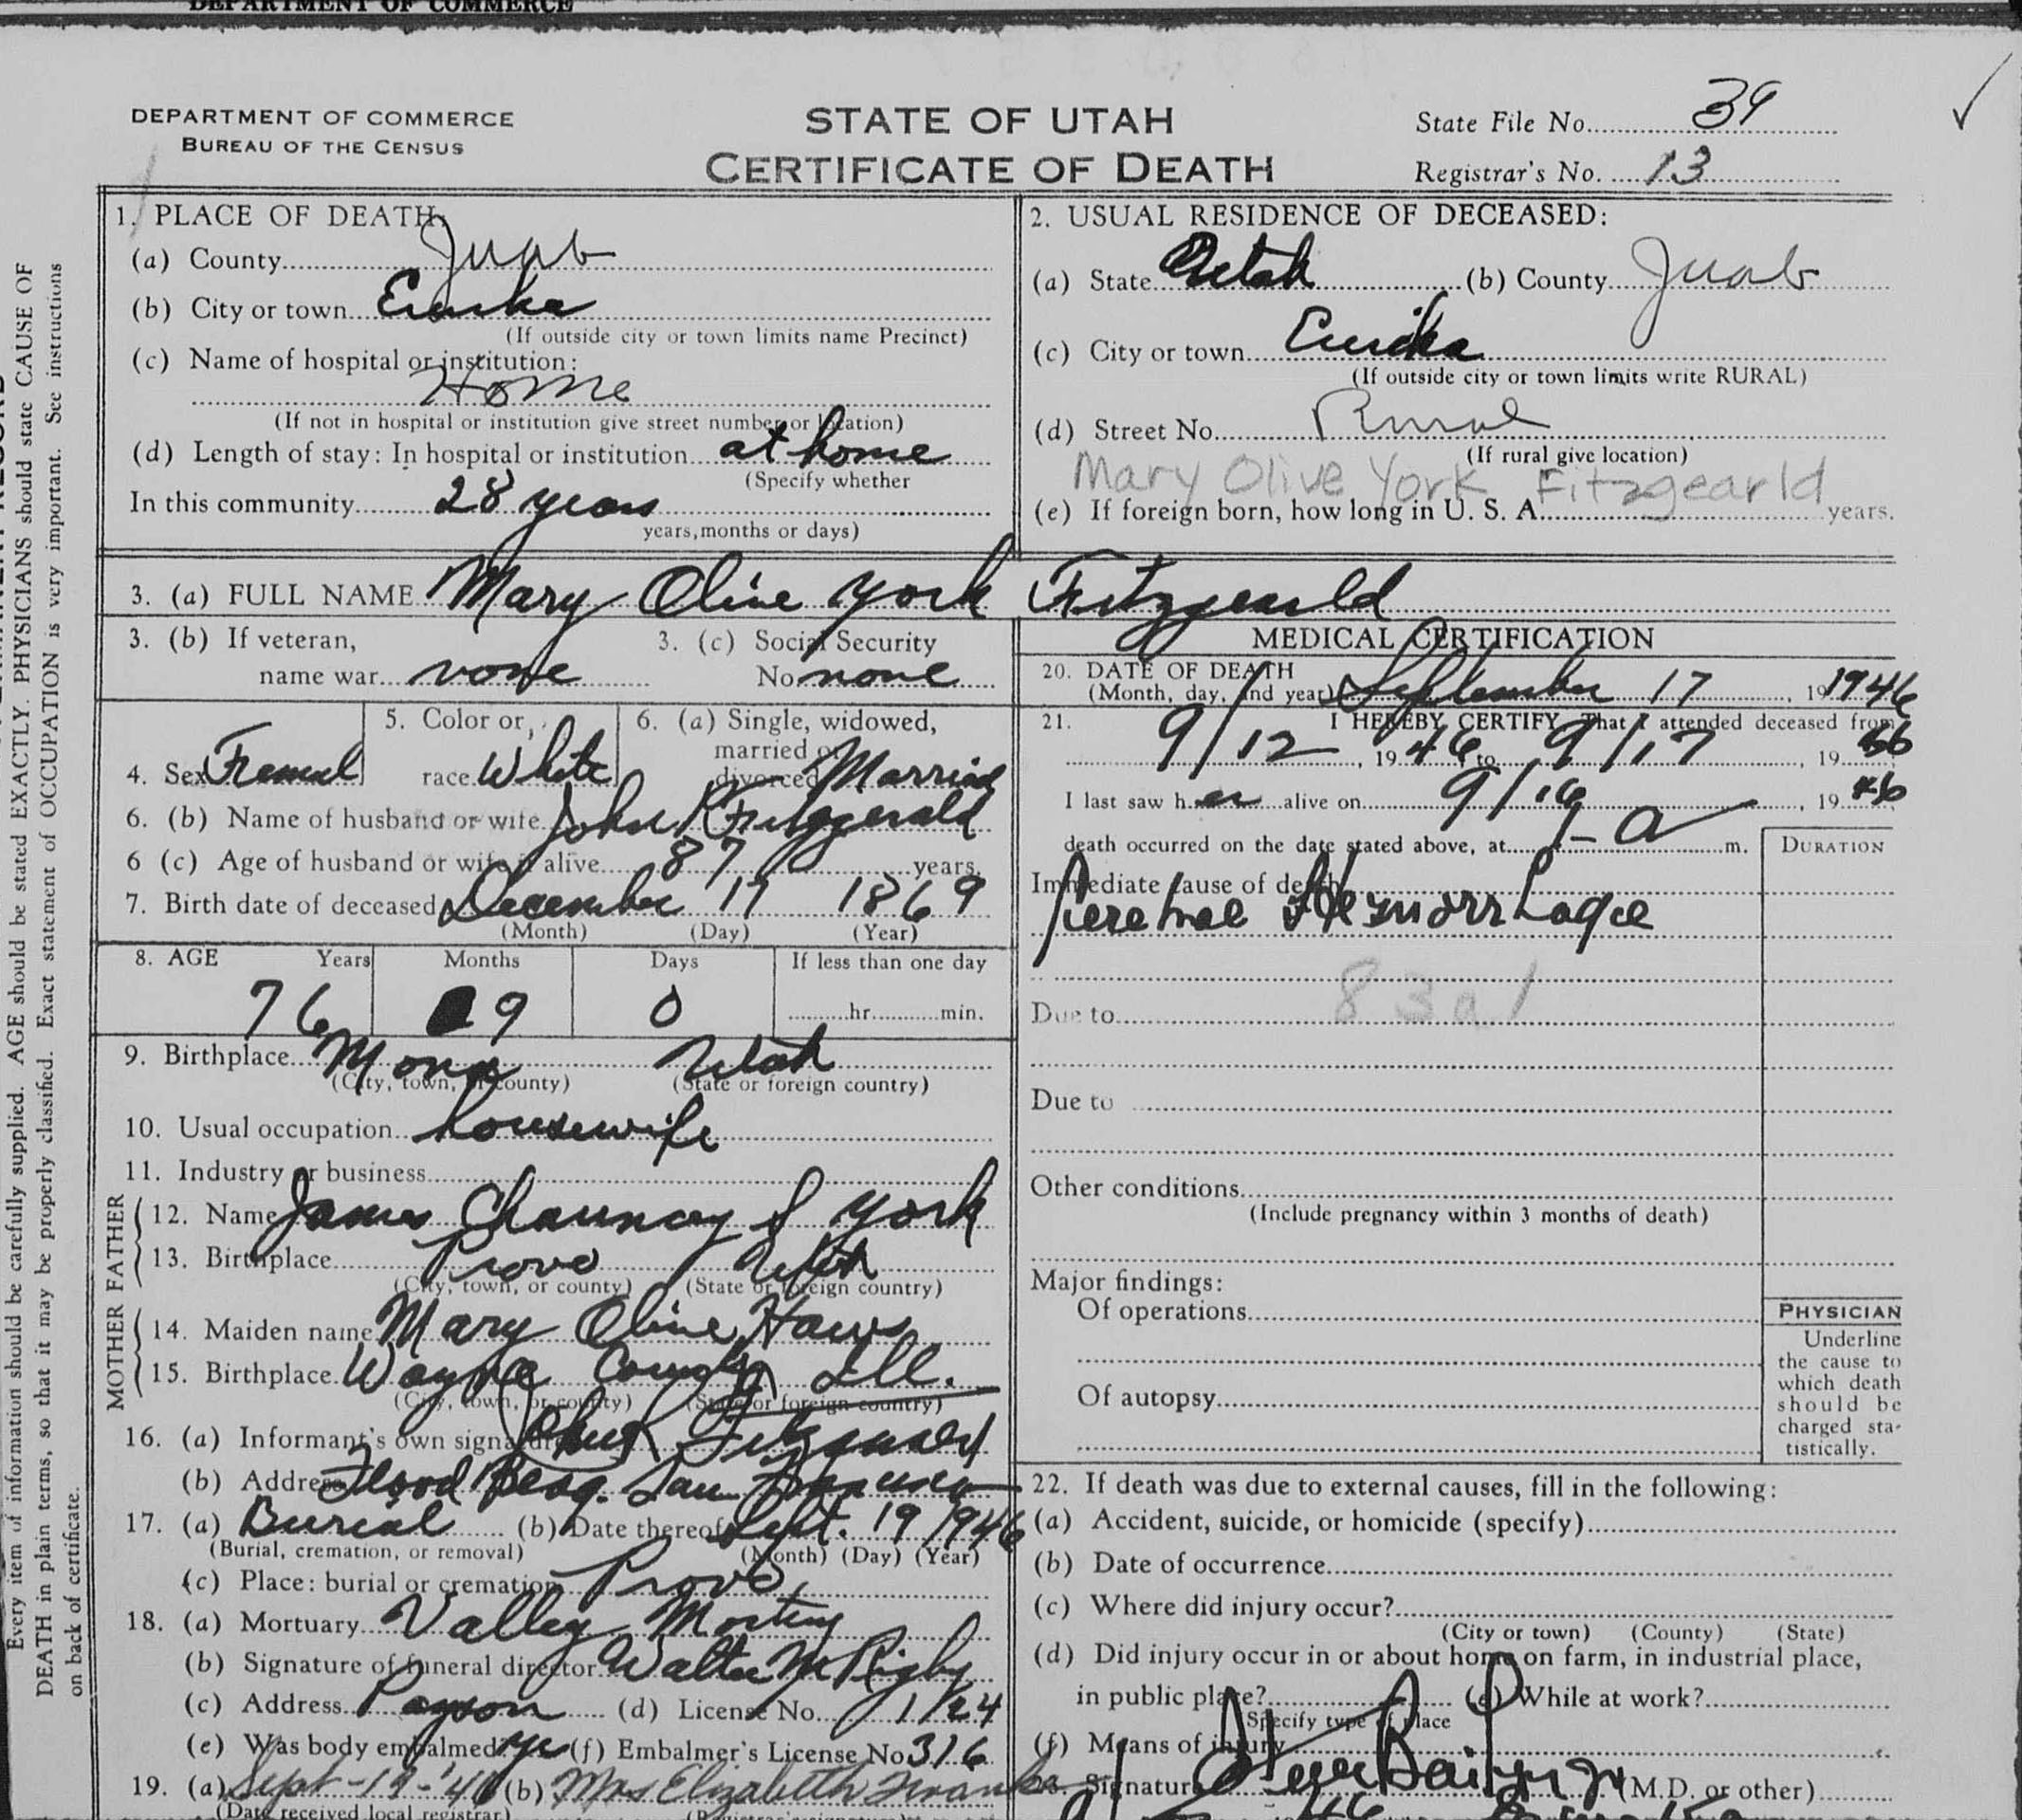 DEPARTMENT OF COMMERCE
DEPARTMENT OF COMMERCE
BUREAU OF THE CENSUS
STATE OF UTAH
CERTIFICATE OF DEATH
State File No. 39
Registrar's No. 13
Every item of information should be carefully supplied. AGE should be stated EXACTLY. PHYSICIANS should state CAUSE OF
DEATH in plain terms, so that it may be properly classified. Exact statement of OCCUPATION is very important. See instructions
on back of certificate.
1. PLACE OF DEATH:
(a) County Juab
(b) City or town Eureka
(If outside city or town limits name Precinct)
(c) Name of hospital or institution:
Home
(If not in hospital or institution give street number or location)
(d) Length of stay: In hospital or institution at home
(Specify whether
In this community 28 years
years, months or days)
2. USUAL RESIDENCE OF DECEASED:
(a) State Utah (b) County Juab
(c) City or town Eureka
(If outside city or town limits write RURAL)
(d) Street No. Rural
(If rural give location)
Mary Olive York Fitzgearld
(e) If foreign born, how long in U. S. A. years.
3. (a) FULL NAME Mary Olive York Fitzgearld
3. (b) If veteran,
name war none
3. (c) Social Security
No. none
4. Sex Femal
5. Color or
race White
6. (a) Single, widowed,
married or
divorced Married
6. (b) Name of husband or wife John Fitzgerald
6 (c) Age of husband or wife if alive 87 years
7. Birth date of deceased December 17 1869
(Month) (Day) (Year)
8. AGE Years Months Days If less than one day
76 9 0 hr. min.
9. Birthplace Mona Utah
(City, town, or county) (State or foreign country)
10. Usual occupation housewife
11. Industry or business
FATHER
12. Name James Chauncey S York
13. Birthplace Provo Utah
(City, town, or county) (State or foreign country)
MOTHER
14. Maiden name Mary Olive Haws
15. Birthplace Wayne County Ill.
(City, town, or county) (State or foreign country)
16. (a) Informant's own signature
(b) Address Flood Bldg. San Francisco
17. (a) Burial (b) Date thereof Sept. 19 1946
(Burial, cremation, or removal) (Month) (Day) (Year)
(c) Place: burial or cremation Provo
18. (a) Mortuary Valley Mortuary
(b) Signature of funeral director Walter M Rigby
(c) Address Payson (d) License No. 1124
(e) Was body embalmed? yes (f) Embalmer's License No. 316
19. (a) Sept-19-'46 (b) Mrs Elizabeth
(Date received local registrar)
MEDICAL CERTIFICATION
20. DATE OF DEATH
(Month, day, and year) September 17, 19 1946
21. I HEREBY CERTIFY, That I attended deceased from
9/12, 19 46 to 9/17, 19 46
I last saw her alive on 9/16, 19 46
death occurred on the date stated above, at 1-a m.
DURATION
Immediate cause of death
Cerebral Hemorrhage
83a1
Due to
Due to
Other conditions
(Include pregnancy within 3 months of death)
Major findings:
Of operations
Of autopsy
PHYSICIAN
Underline
the cause to
which death
should be
charged sta-
tistically.
22. If death was due to external causes, fill in the following:
(a) Accident, suicide, or homicide (specify)
(b) Date of occurrence
(c) Where did injury occur?
(City or town) (County) (State)
(d) Did injury occur in or about home, on farm, in industrial place,
in public place? (e) While at work?
Specify type of place
(f) Means of injury
23. Signature (M.D. or other)